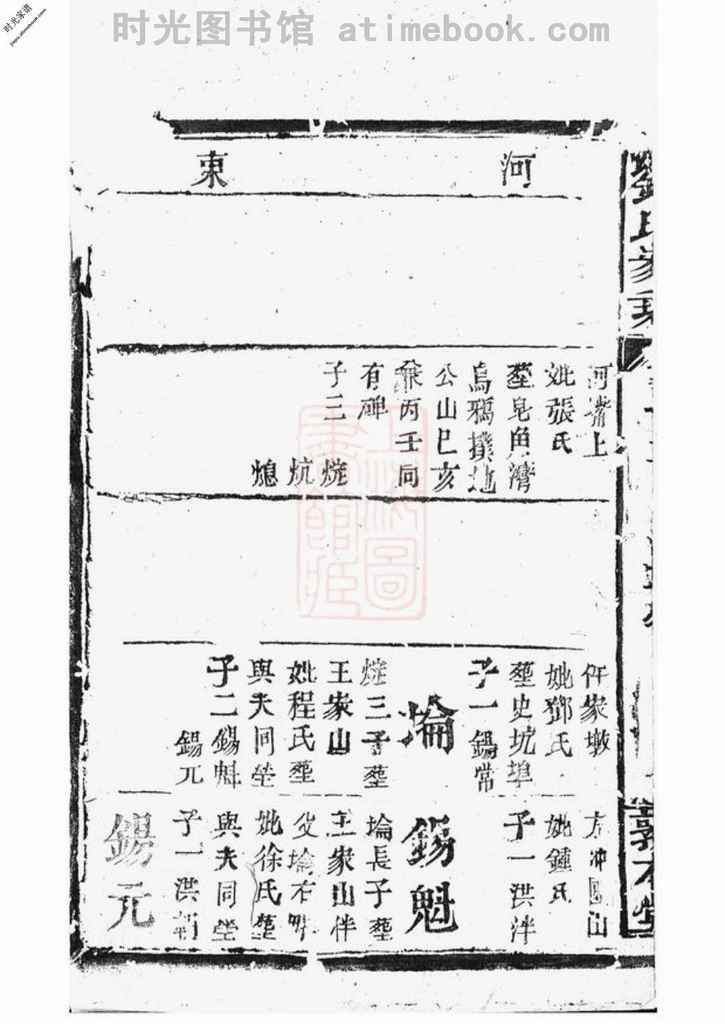 时光图书馆 atimebook.com
时光家谱
河東
劉氏家乘
河嘴上
妣張氏
塟皂角灣
烏鴉撲地
公山巳亥
兼丙壬同
有碑
子三
炕
仵家墩
妣鄧氏
塟史坑埠
子一錫常
三子塟
王家山
妣程氏塟
與夫同塋
子二錫魁
錫元
妣鍾氏
子一洪泮
錫魁
長子塟
王家山伴
妣徐氏塟
與夫同塋
子一洪
錫元
敦本堂